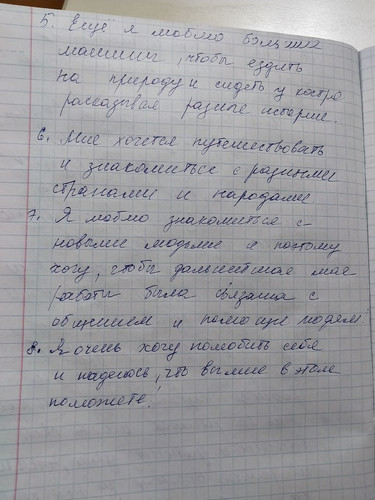 5. Ещё я люблю большие
машины, чтобы ездить
на природу и сидеть у костра
рассказывая разные истории.
6. Мне хочется путешествовать
и знакомиться с разными
странами и народами
7. Я люблю знакомиться с
новыми людьми и поэтому
хочу, чтобы дальнейшая моя
работа была связана с
общением и помощи людям
8. Я очень хочу полюбить себя
и надеюсь, что вы мне в этом
поможете!